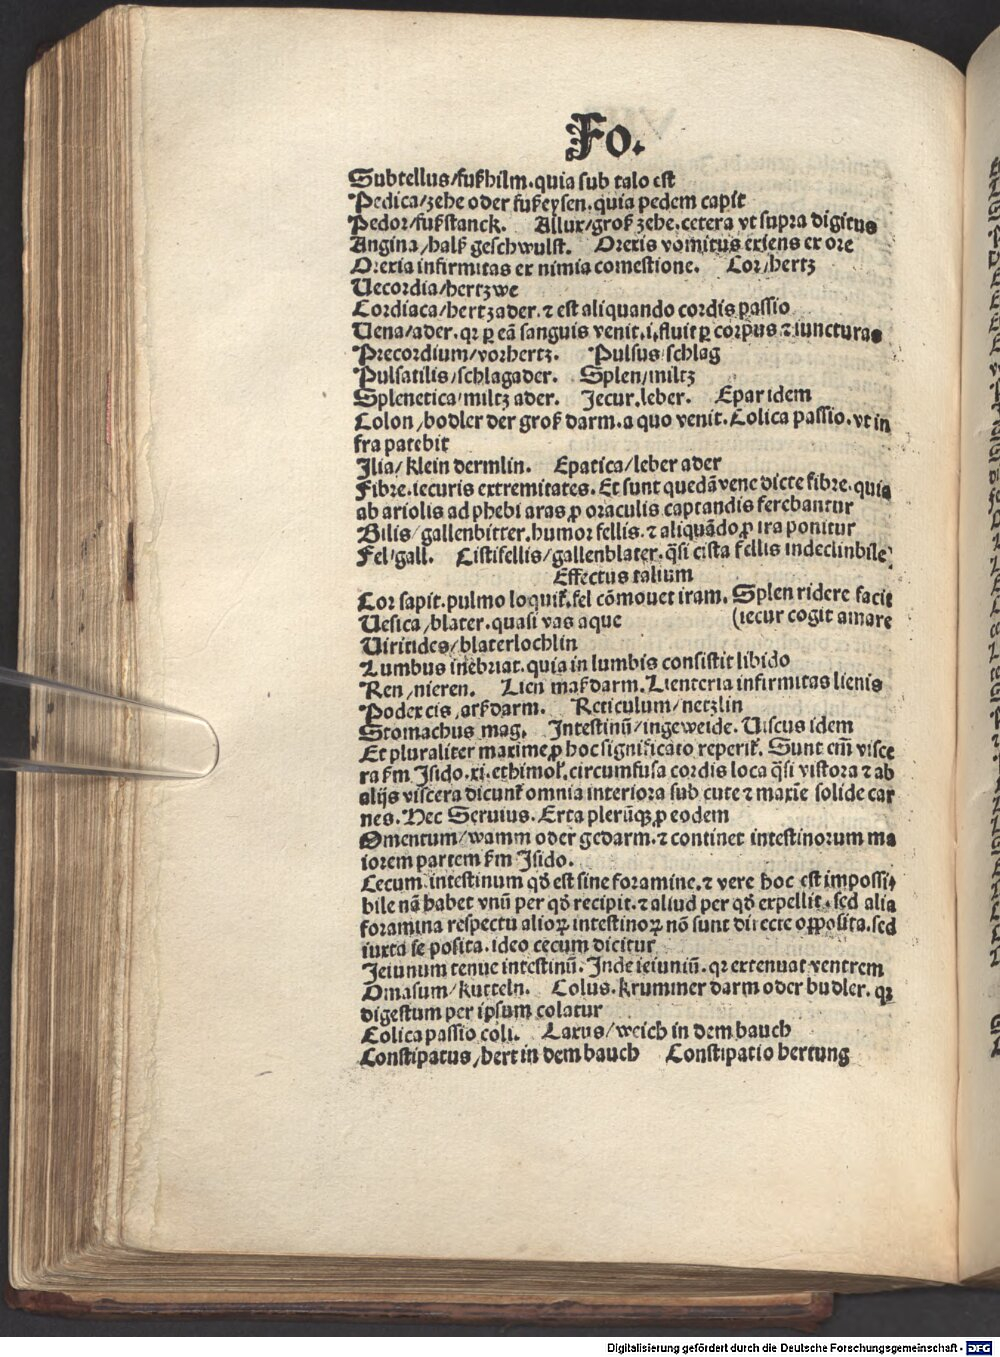 Fo.
Subtellus/fußhilm.quia sub talo est
Pedica/zehe oder fußeysen.quia pedem capit
Pedor/fußstanck. Allux/groß zehe.cetera vt supra digitus
Angina/halß geschwulst. Orexis vomitus exiens ex ore
Orexia infirmitas ex nimia comestione. Cor/hertz
Uecordia/hertzwe
Cordiaca/hertzader.⁊ est aliquando cordis passio
Uena/ader.qꝛ ꝑ eā sanguis venit.i.fluit ꝑ corpus ⁊ iuncturas
Precordium/vorhertz. Pulsus/schlag
Pulsatilis/schlagader. Splen/miltz
Splenetica/miltz ader. Jecur.leber. Epar idem
Colon/bodler der groß darm.a quo venit.Colica passio.vt in
fra patebit
Ilia/klein dermlin. Epatica/leber ader
Fibre.iecuris extremitates.Et sunt quedā vene dicte fibre.quia
ab ariolis ad phebi aras ꝓ oraculis captandis ferebantur
Bilis/gallenbitter.humor fellis.⁊ aliquādo ꝓ ira ponitur
Fel/gall. Cistifellis/gallenblater.q̄si cista fellis indeclinbile
Effectus talium
Cor sapit.pulmo loquit᷑.fel cōmouet iram.Splen ridere facit
Uesica/blater.quasi vas aque (iecur cogit amare
Uiritides/blaterlochlin
Lumbus inebriat.quia in lumbis consistit libido
Ren/nieren. Lien maßdarm.Lienteria infirmitas lienis
Podex cis/arßdarm. Reticulum/netzlin
Stomachus mag. Intestinū/ingeweide.Uiscus idem
Et pluraliter maxime ꝓ hoc significato reperit᷑.Sunt em̄ visce
ra ẜm Isido.xi.ethimol᷑.circumfusa cordis loca q̄si vistora ⁊ ab
alijs viscera dicunt᷑ omnia interiora sub cute ⁊ maxīe solide car
nes.Hec Seruius.Exta plerūqꝫ ꝓ eodem
Omentum/wamm oder gedarm.⁊ continet intestinorum ma
iorem partem ẜm Isido.
Cecum intestinum qd̄ est sine foramine.⁊ vere hoc est impossi
bile nā habet vnū per qd̄ recipit.⁊ aliud per qd̄ expellit.sed alia
foramina respectu alioꝝ intestinoꝝ nō sunt directe opposita.sed
iuxta se posita.ideo cecum dicitur
Jeiunum tenue intestinū.Inde ieiuniū.qꝛ extenuat ventrem
Omasum/kutteln. Colus.krummer darm oder budler.qꝛ
digestum per ipsum colatur
Colica passio coli. Laxus/weich in dem bauch
Constipatus/hert in dem bauch Constipatio hertung
Digitalisierung gefördert durch die Deutsche Forschungsgemeinschaft - DFG